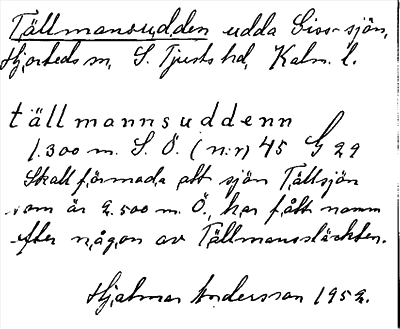 Tällmansudden udda Siss-sjön,
Hjorteds sn, S. Tjusts hd, Kalm. l.
tällmannsuddenn
1.300 m. S. Ö. (nr) 45 G 29
Skall förmoda att sjön Tältsjön
som är 2.500 m. Ö. har fått namn
efter någon av Tällmanssläkten.
Hjalmar Andersson 1952.